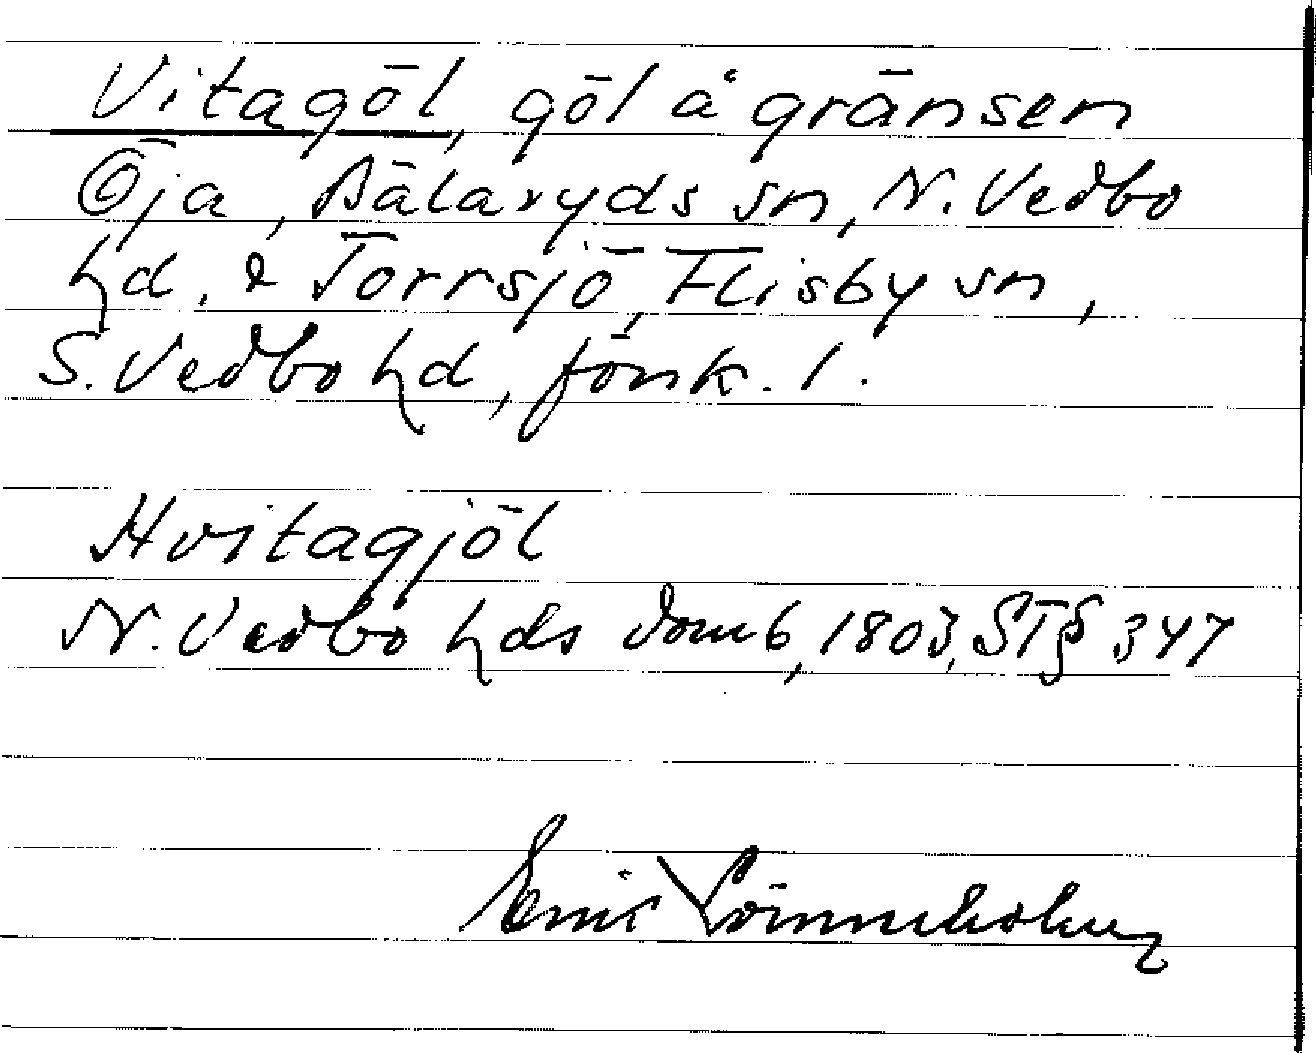 Vitagöl, göl å gränsen
Öja, Bälaryds sn, N. Vedbo
hd. & Torrsjö, Flisby sn,
S. Vedbo hd, Jönk. l.
Hvitagjöl
N. Vedbo hds domb, 1803, ST § 347